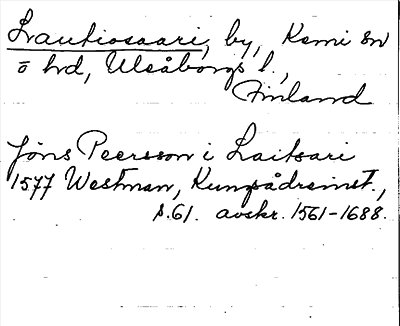 Lautiosaari, by, Kemi sn
o hd, Uleåborgs l.,
Finland
Jöns Peersson i Laitsari
1577 Westman, Kungsådreinst.,
s. 61. avskr. 1561-1688.